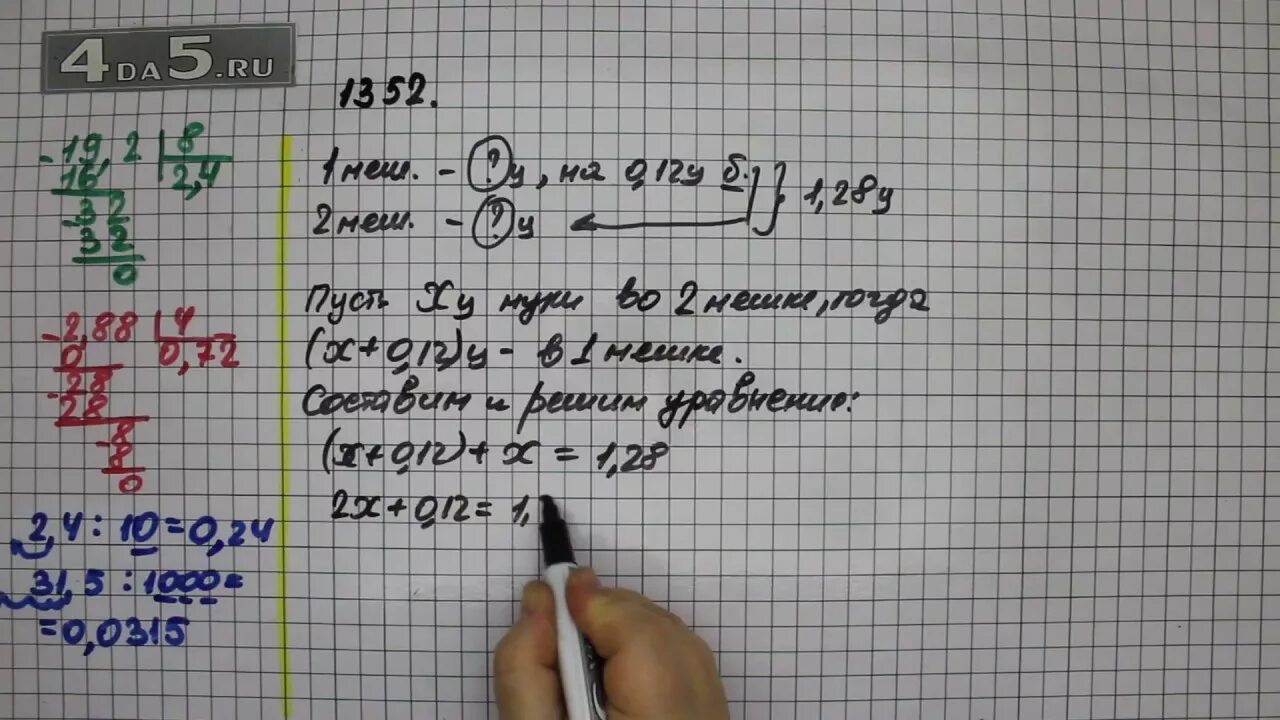 4DA5.RU
1352.
-19,2 | 8
16 2,4
-32
32
0
-2,88 | 4
0 0,72
-28
28
-8
8
0
2,4 : 10 = 0,24
31,5 : 1000 =
= 0,0315
1 меш. - ? ц, на 0,12ц б.
2 меш. - ? ц
1,28ц
Пусть Xц муки во 2 мешке, тогда
(x + 0,12)ц - в 1 мешке.
Составим и решим уравнение:
(x + 0,12) + x = 1,28
2x + 0,12 = 1,